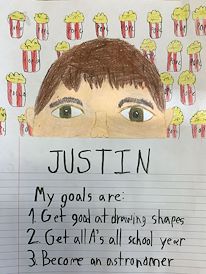 JUSTIN
My goals are:
1. Get good at drawing shapes
2. Get all A's all school year
3. Become an astronomer